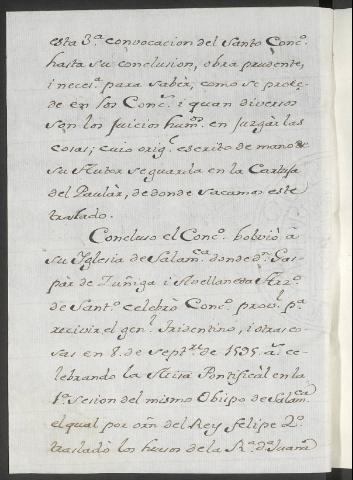 esta 3.ª convocacion del Santo Conc.º
hasta su conclusion, obra prudente,
i neces.ª para sabèr, como se proce-
de en los Conc.s i quan diversos
son los juicios hum.s en juzgàr las
cosas; cuio orig.l escrito de mano de
su Autor se guarda en la Cartuja
del Paulàr, de donde sacamos este
traslado.
Concluso el Conc.º bolviò à
su Iglesia de Salam.ca donde d.n Gas-
pàr de Zuñiga i Avellaneda Arz.º
de Sant.º celebrò Conc.º prov.l p.ª
recivir el gen.l Tridentino, i otras co-
sas en 8. de Sept.re de 1565. a.s ce-
lebrando la Misa Pontificàl en la
1.ª Sesion del mismo Obispo de Salam.ca
el qual por orn. del Rey Felipe 2.º
trasladò los huesos de la R.ª d.ª Juana